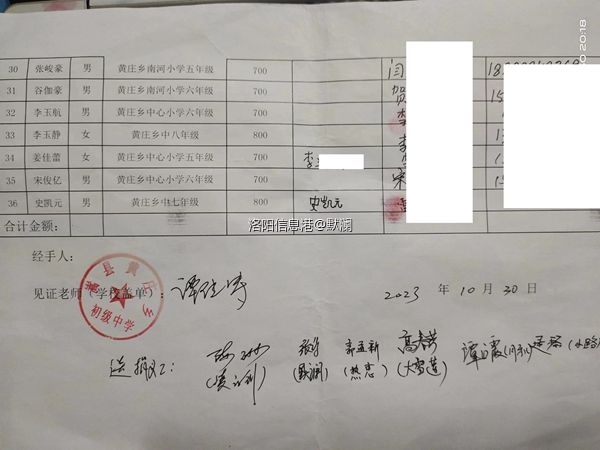 30 张峻豪 男 黄庄乡南河小学五年级 700 闫
31 谷伽豪 男 黄庄乡南河小学六年级 700 贺
32 李玉航 男 黄庄乡中心小学六年级 700 李
33 李玉静 女 黄庄乡中八年级 800 李
34 姜佳蕾 女 黄庄乡中心小学五年级 700 李
35 宋俊亿 男 黄庄乡中心小学六年级 700 宋
36 史凯元 男 黄庄乡中七年级 800 史凯元
合计金额:
洛阳信息港@默澜
经手人:
见证老师(学校盖单):
嵩县黄庄乡
初级中学
2023 年 10 月 30 日
送捐义工:
张
(默澜)
郭孟新
(热恋)
高春芳
(大雪莲)
谭霞